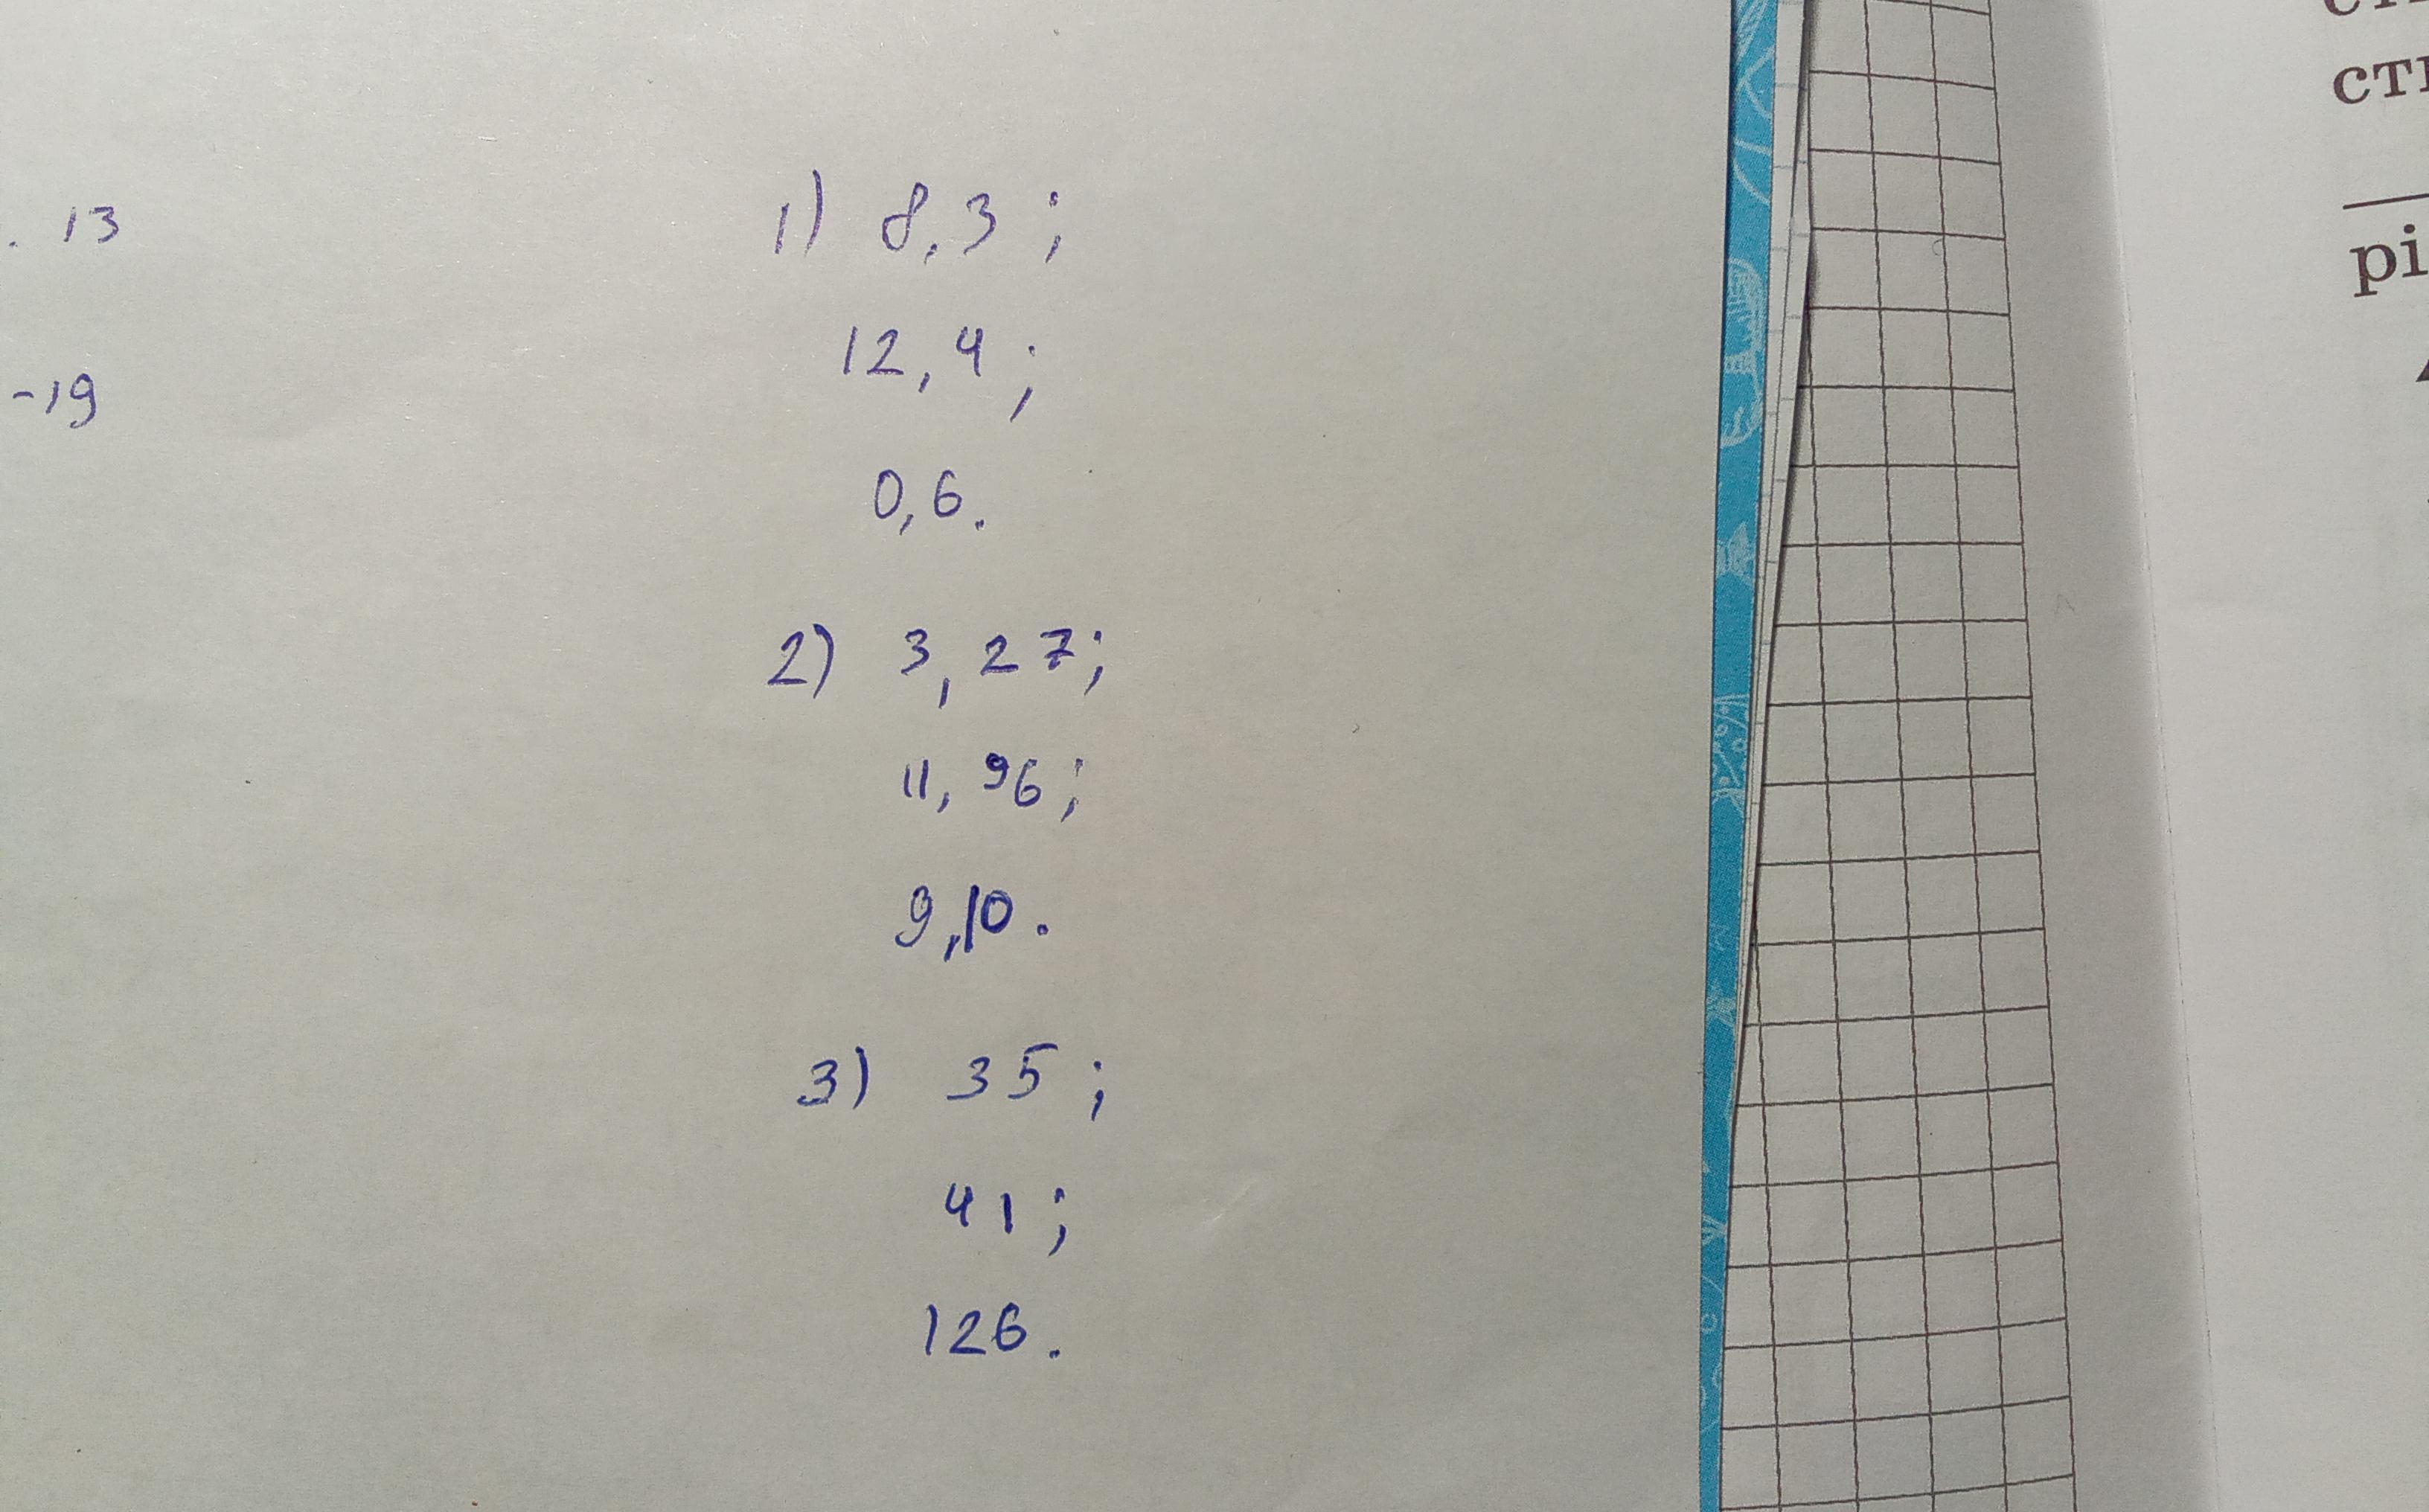 . 13
-19
1) 8,3;
12,4;
0,6.
2) 3,27;
11,96;
9,10.
3) 35;
41;
126.
рі